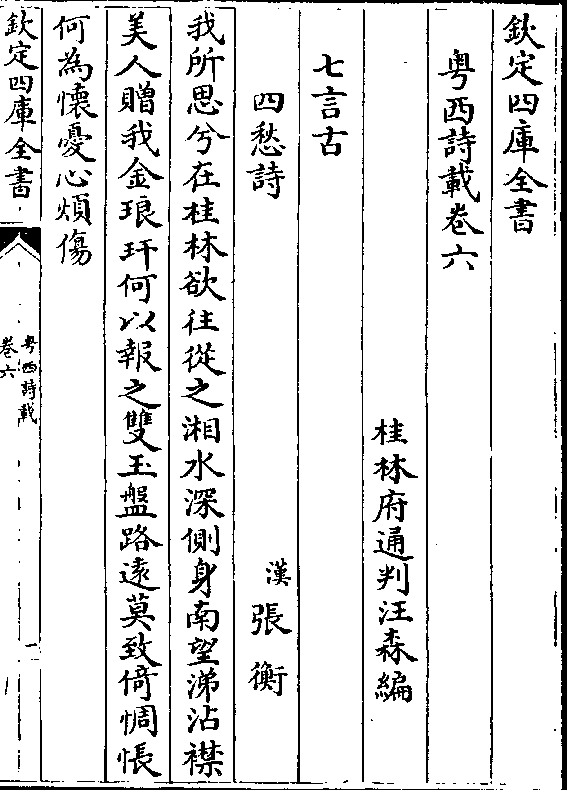 欽定四庫全書
粤西詩載卷六
桂林府通判汪森編
七言古
四愁詩
漢張衡
我所思兮在桂林欲往從之湘水深側身南望涕沾襟
美人贈我金琅玕何以報之雙玉盤路遠莫致倚惆悵
何為懷憂心煩傷
欽定四庫全書
粤西詩載
卷六
一